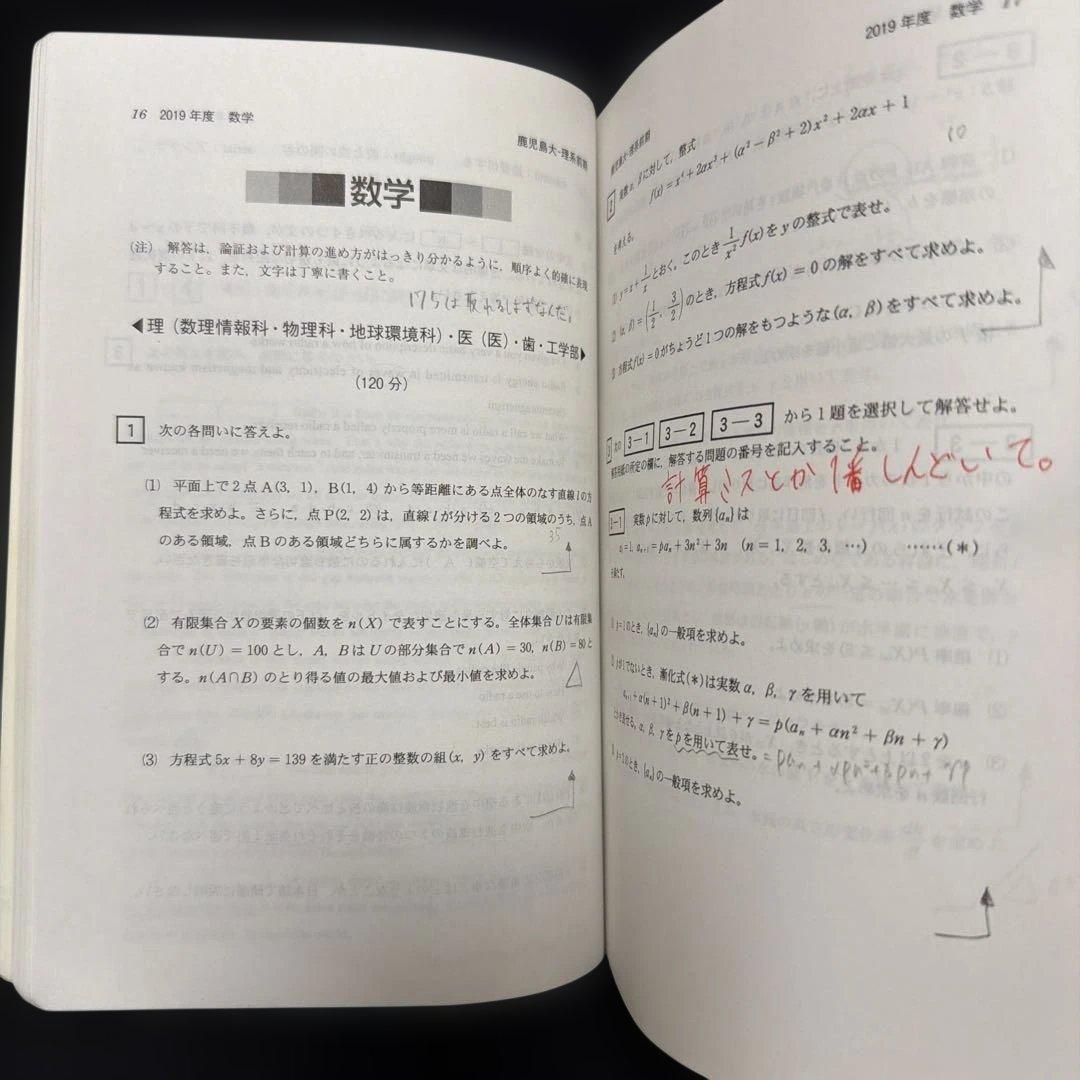 16 2019年度 数学
鹿児島大-理系前期
数学
(注) 解答は，論証および計算の進め方がはっきり分かるように，順序よく的確に表現
すること。また，文字は丁寧に書くこと。
175は取れるはずなんだ。
◀理（数理情報科・物理科・地球環境科）・医（医）・歯・工学部▶
(120 分)
1 次の各問いに答えよ。
(1) 平面上で2点 A(3, 1)，B(1, 4) から等距離にある点全体のなす直線 l の方
程式を求めよ。さらに，点 P(2, 2) は，直線 l が分ける2つの領域のうち，点 A
のある領域，点 B のある領域どちらに属するかを調べよ。
35
(2) 有限集合 X の要素の個数を n(X) で表すことにする。全体集合 U は有限集
合で n(U) = 100 とし，A，B は U の部分集合で n(A) = 30，n(B) = 80 と
する。n(A∩B) のとり得る値の最大値および最小値を求めよ。
(3) 方程式 5x + 8y = 139 を満たす正の整数の組 (x, y) をすべて求めよ。
2019年度 数学
鹿児島大-理系前期
2 実数 α, β に対して，整式
f(x) = x⁴ + 2αx³ + (α² − β² + 2)x² + 2αx + 1
を考える。
(1) y = x + 1/x とおく。このとき 1/x² f(x) を y の整式で表せ。
(2) (α, β) = (1/2, 3/2) のとき，方程式 f(x) = 0 の解をすべて求めよ。
(3) 方程式 f(x) = 0 がちょうど1つの解をもつような (α, β) をすべて求めよ。
3 次の 3－1 3－2 3－3 から1題を選択して解答せよ。
解答用紙の所定の欄に，解答する問題の番号を記入すること。
計算ミスとか1番しんどいて。
3－1 実数 p に対して，数列 {aₙ} は
a₁ = 1, aₙ₊₁ = paₙ + 3n² + 3n (n = 1, 2, 3, …) ……(＊)
を満たす。
(1) p = 1 のとき，{aₙ} の一般項を求めよ。
(2) p が 1 でないとき，漸化式(＊)は実数 α, β, γ を用いて
aₙ₊₁ + α(n + 1)² + β(n + 1) + γ = p(aₙ + αn² + βn + γ)
と書き表せる。α, β, γ を p を用いて表せ。
= paₙ + αpn² + βpn + γp
(3) p = 2 のとき，{aₙ} の一般項を求めよ。